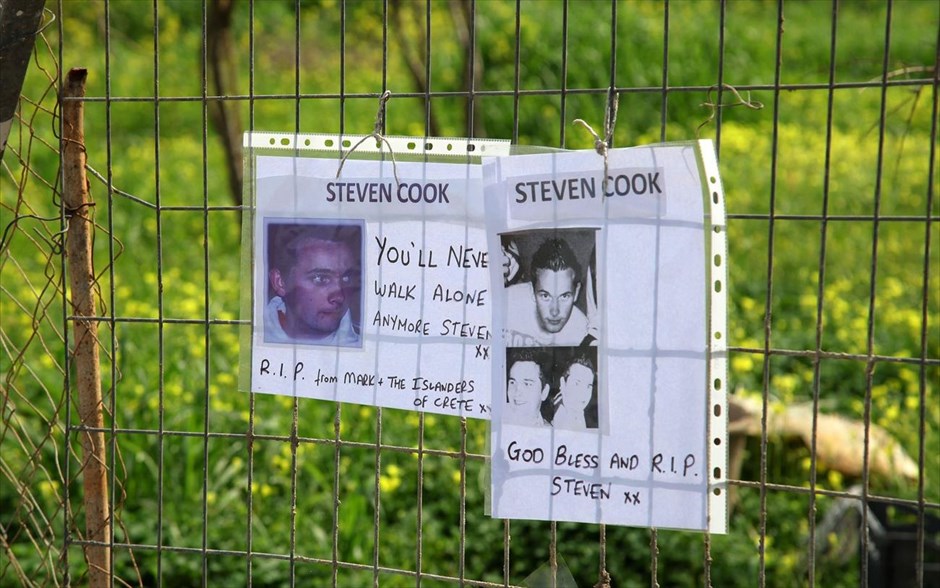 STEVEN COOK
YOU'LL NEVE
WALK ALONE
ANYMORE STEVEN
xx
R.I.P. from MARK + THE ISLANDERS
OF CRETE xx
STEVEN COOK
GOD BLESS AND R.I.P.
STEVEN xx